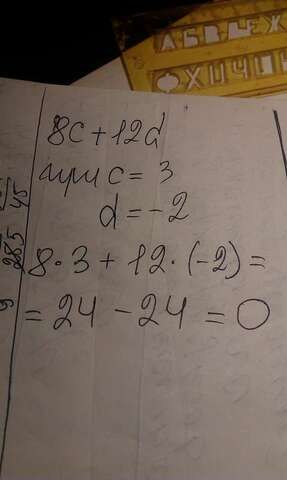 А Б В Д Е Ж
Ф Х Ц Ч
8c + 12d
при c = 3
d = -2
8 · 3 + 12 · (-2) =
= 24 - 24 = 0